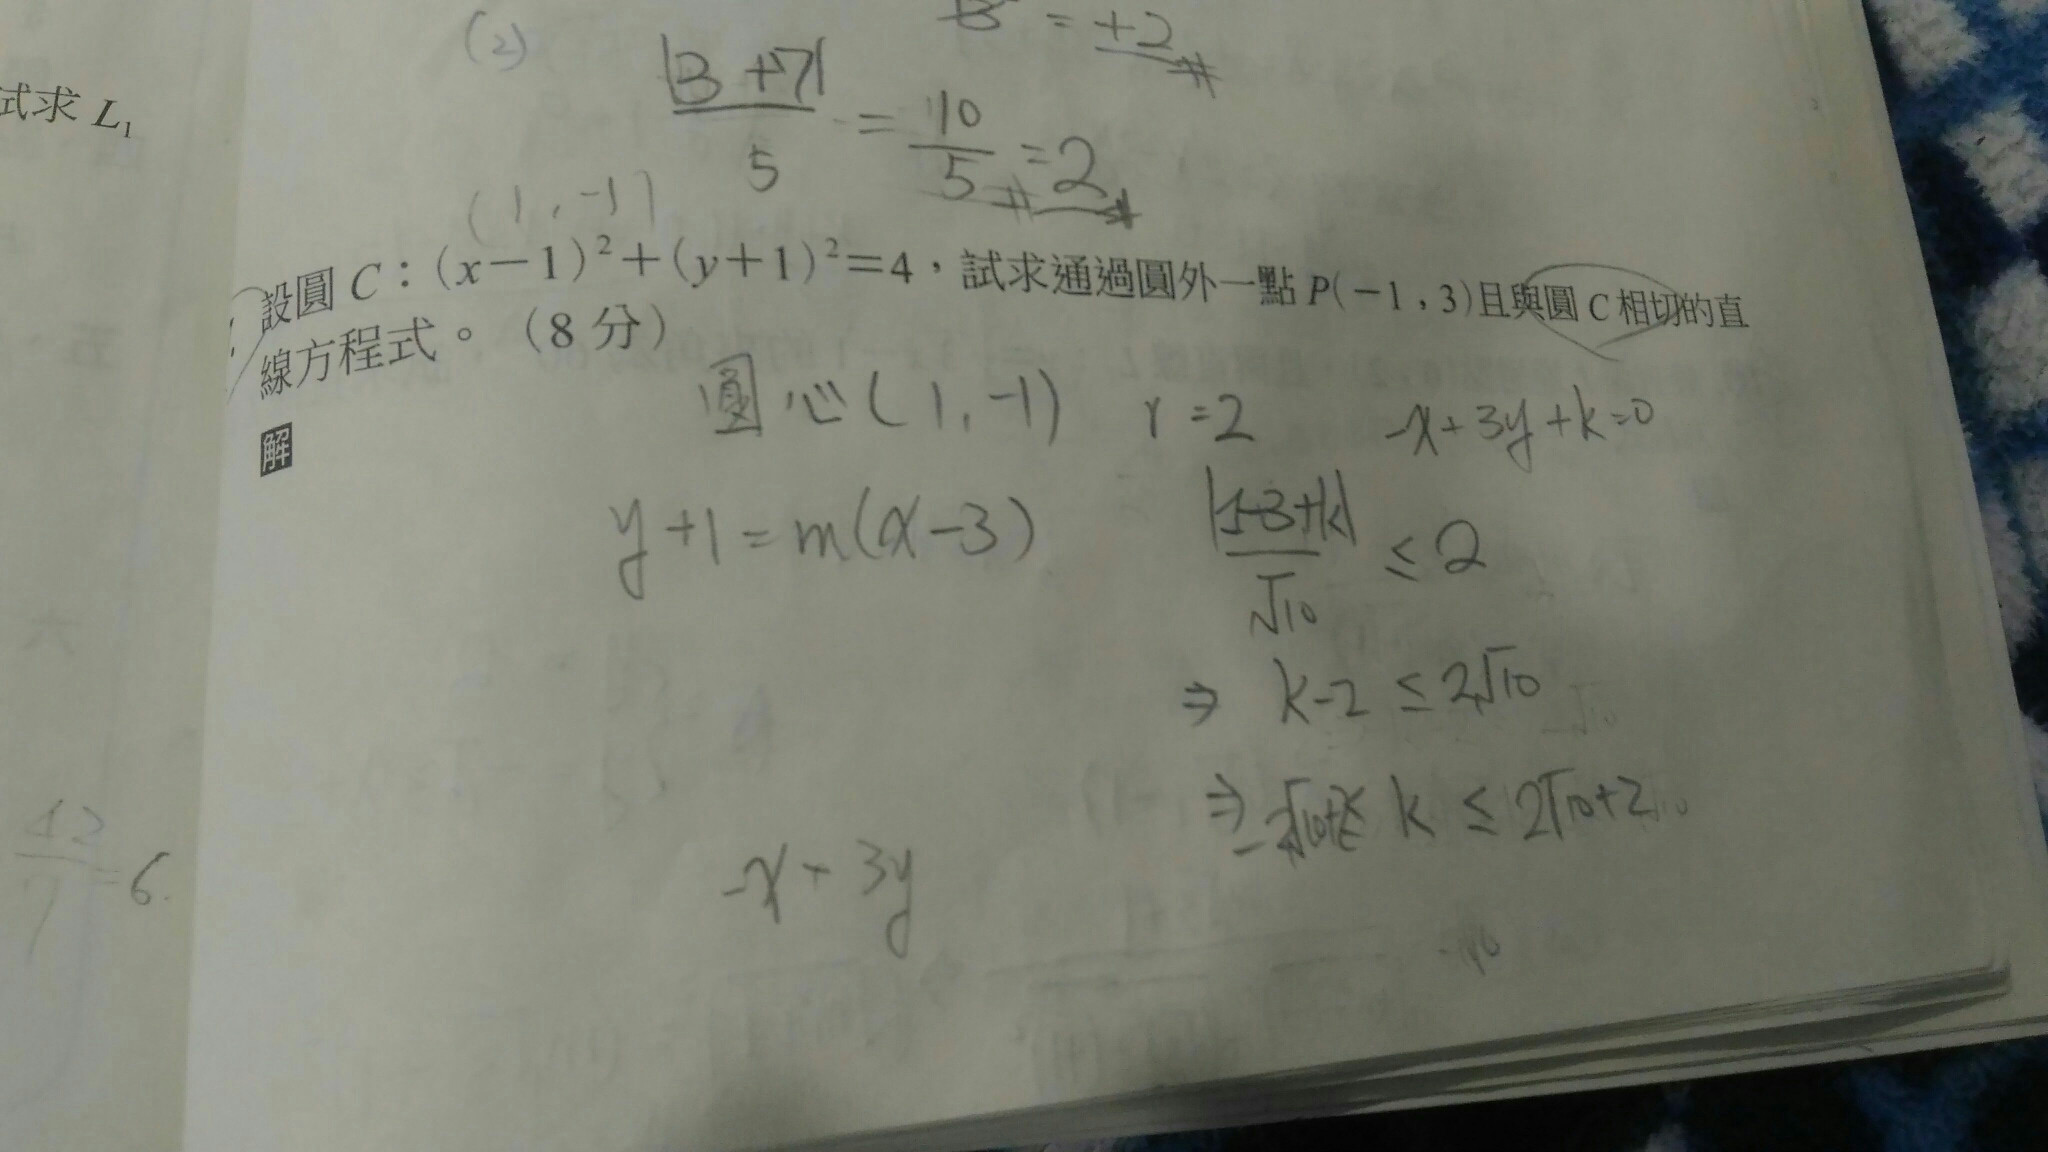 試求 L₁
(2)
B = ±2 #
|3+7| / 5 = 10/5 # = 2 #
(1, -1)
設圓 C：(x−1)²+(y+1)²=4，試求通過圓外一點 P(−1，3)且與圓 C 相切的直
線方程式。（8 分）
解
圓心(1,-1) r=2 -x+3y+k=0
y+1=m(x-3)
|-1-3+k| / √10 ≤ 2
⇒ k-2 ≤ 2√10
⇒ -2√10+2 ≤ k ≤ 2√10+2
-x+3y
=6